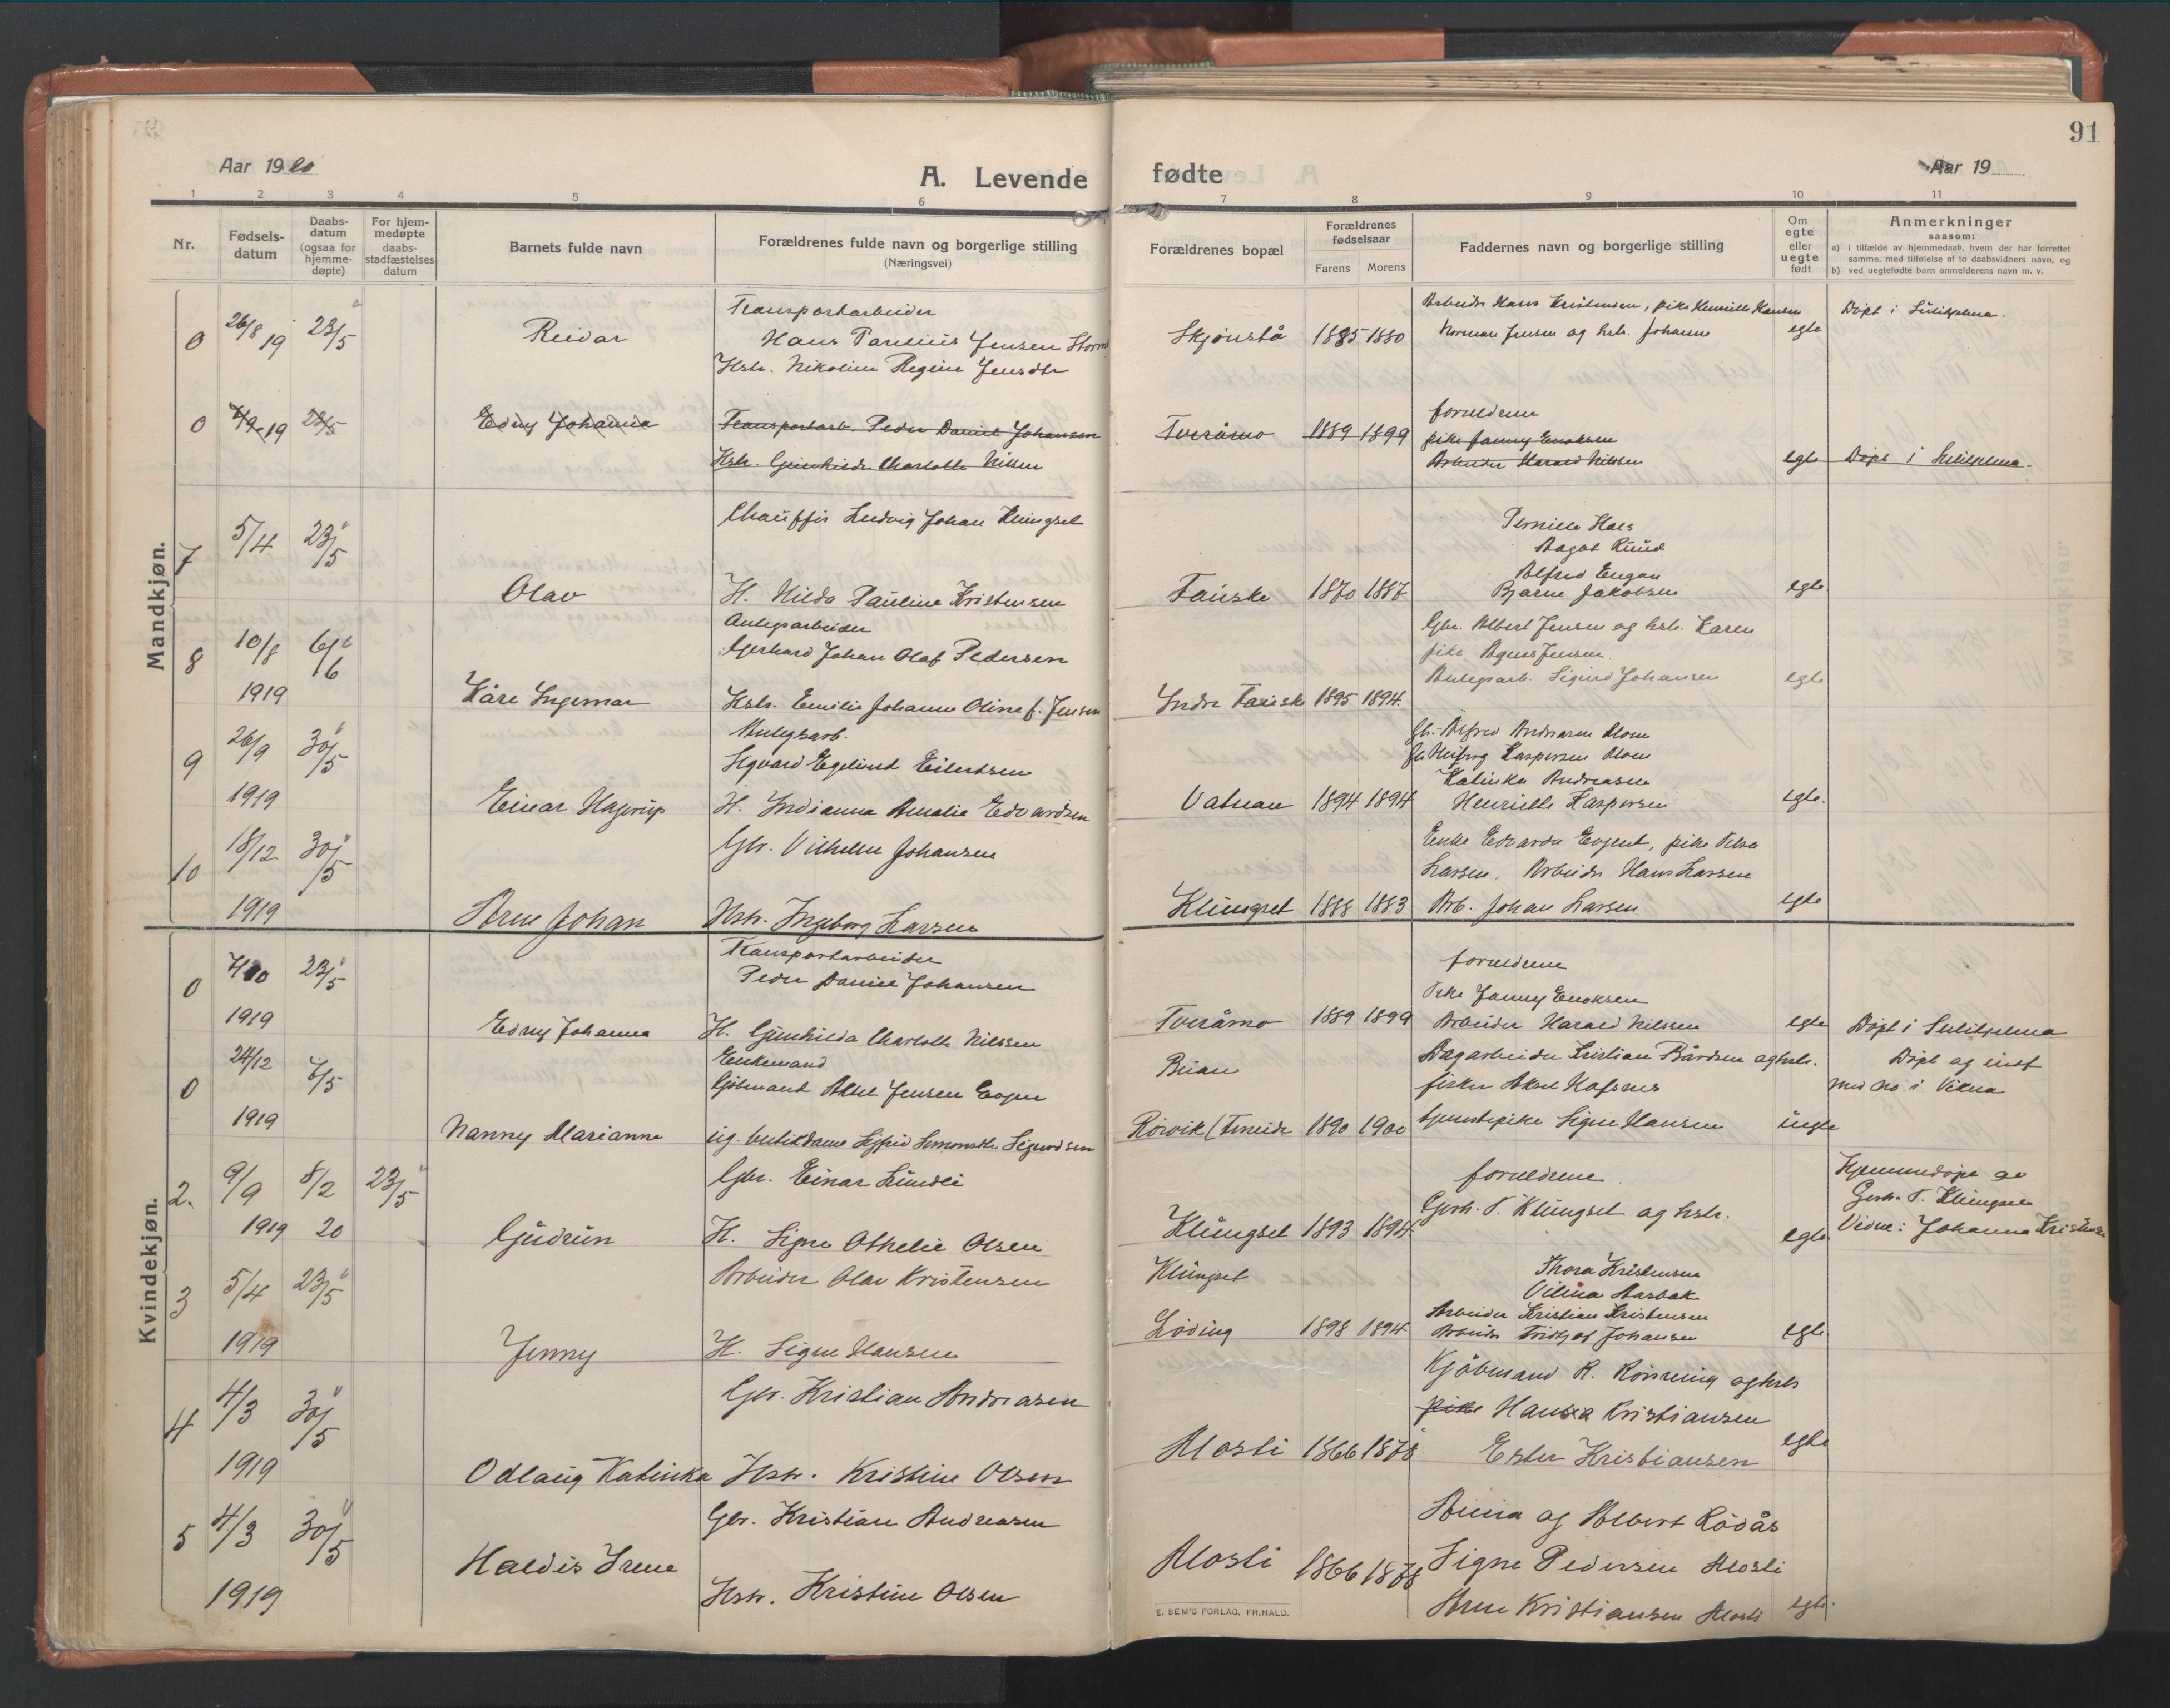 91
Aar 1920
A. Levende fødte
Aar 19
1 2 3 4 5 6 7 8 9 10 11
Nr.
Fødsels-
datum
Daabs-
datum
(ogsaa for
hjemme-
døpte)
For hjem-
medøpte
daabs-
stadfæstelses
datum
Barnets fulde navn
Forældrenes fulde navn og borgerlige stilling
(Næringsvei)
Forældrenes bopæl
Forældrenes
fødselsaar
Farens Morens
Faddernes navn og borgerlige stilling
Om
egte
eller
uegte
født
Anmerkninger
saasom:
a) i tilfælde av hjemmedaab, hvem der har forrettet
samme, med tilføielse af to daabsvidners navn, og
b) ved uegtefødte barn anmelderens navn m. v.
Mandkjøn.
Transportarbeider
Arbeider Hans Kristensen, pike Henriette Hansen
0 26/8 19 23/5 Reidar Hans Parelius Jensen Storm
Skjønstå 1885 1880 Norman Jensen og hstr. Johanne egte Døpt i Sulitjelma.
Hstr. Nikoline Regine Jensdtr
forældrene
0 7/9 19 23/5 Edny Johanna Transportarb. Peder Daniel Johansen
Tveråmo 1889 1899 pike Janny Enoksen
Hstr. Gunhilda Charlotte Nilsen
Arbeider Harald Nilssen egte Døpt i Sulitjelma.
7 5/4 23/5 Chauffør Ludvig Johan Klungset
Pernille Hals
Aagot Ruud
Alfred Engan
Olav H. Hilda Pauline Kristensen
Fauske 1870 1887 Bjarne Jakobsen egte
Anlegsarbeider
8 10/8 6/6 Gerhard Johan Olaf Pedersen
Gbr. Albert Jensen og hstr. Karen
pike Agnes Jensen.
1919 Kåre Ingemar Hstr. Emilie Johanne Oline f. Jensen
Indre Fauske 1895 1894. Anlegsarb. Sigurd Johansen egte
Anlegsarb.
9 26/9 30/5 Sigvard Egelund Eilertsen
Gbr. Alfred Andreasen Moen
Kaspersen Moen
Katinka Andreasen
1919 Einar Hagerup H. Indianna Amalie Edvardsen
Vatnan 1894 1894 Henriette Kaspersen egte.
10 18/12 30/5 Gbr. Vilhelm Johansen
Enke Edvarda Evgent, pike
Larsen. Arbeider Hans Larsen
1919 Arne Johan Hstr. Ingeborg Larsen
Klungset 1888 1883 Arb. Johan Larsen egte
Kvindekjøn.
Transportarbeider
0 23/5 Peder Daniel Johansen
forældrene
Pike Janny Enoksen
1919 Edny Johanna H. Gunhilda Charlotte Nilssen
Tveråmo 1889 1899 Arbeider Harald Nilssen egte Døpt i Sulitjelma
24/12 Enkemand
0 /5 Albert Jensen
Dagarbeider Kristian Bårdsen og hstr. Døpt og inst
fisker Hafsnes med no i Vikna
1919 Nanny Marianne ug. butikdame Sigfrid Simonsdtr. Sigurdsen
Rørvik (Fineide 1890 1900 tjenestepike Signe Hansen uegte
2. 9/9 8/2 23/5 Gbr. Einar Lundli
forældrene.
Hjemmedøpt av
Gerh. P. Klungset
1919 20 Gudrun H. Signe Othelie Olsen
Klungset 1893 1894 Gerh. P. Klungset og hstr. egte Vidne: Johanna Kristensen
3 5/4 23/5 Arbeider Olav Kristensen
Klungset
Thora Kristensen
Vilma Aasbak
Arbeider Kristian Kristensen
1919 Jenny H. Signe Hansen
Løding 1898 1894 Arbeider Fridtjof Johansen egte
4 4/3 30/5 Gbr. Kristian Andreasen
Kjøbmand R. Rønning og hstr
pike Hansea Kristiansen
1919 Odlaug Katinka Hstr. Kristine Olsen
Mosti 1866 1878 Ester Kristiansen egte
5 4/3 30/5 Gbr. Kristian Andreasen
Anna og Albert Rödås
Haldis Irene
Mosti 1866 1878 Signe Pedersen Mosti
1919 Hstr. Kristine Olsen
Arne Kristiansen Mosti egte.
E. SEM'S FORLAG, FR.HALD.